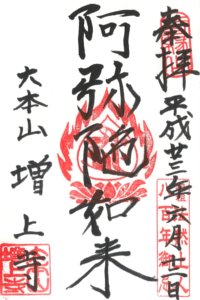 奉拝 平成廿三年六月
阿弥陀如来
大本山 増上寺